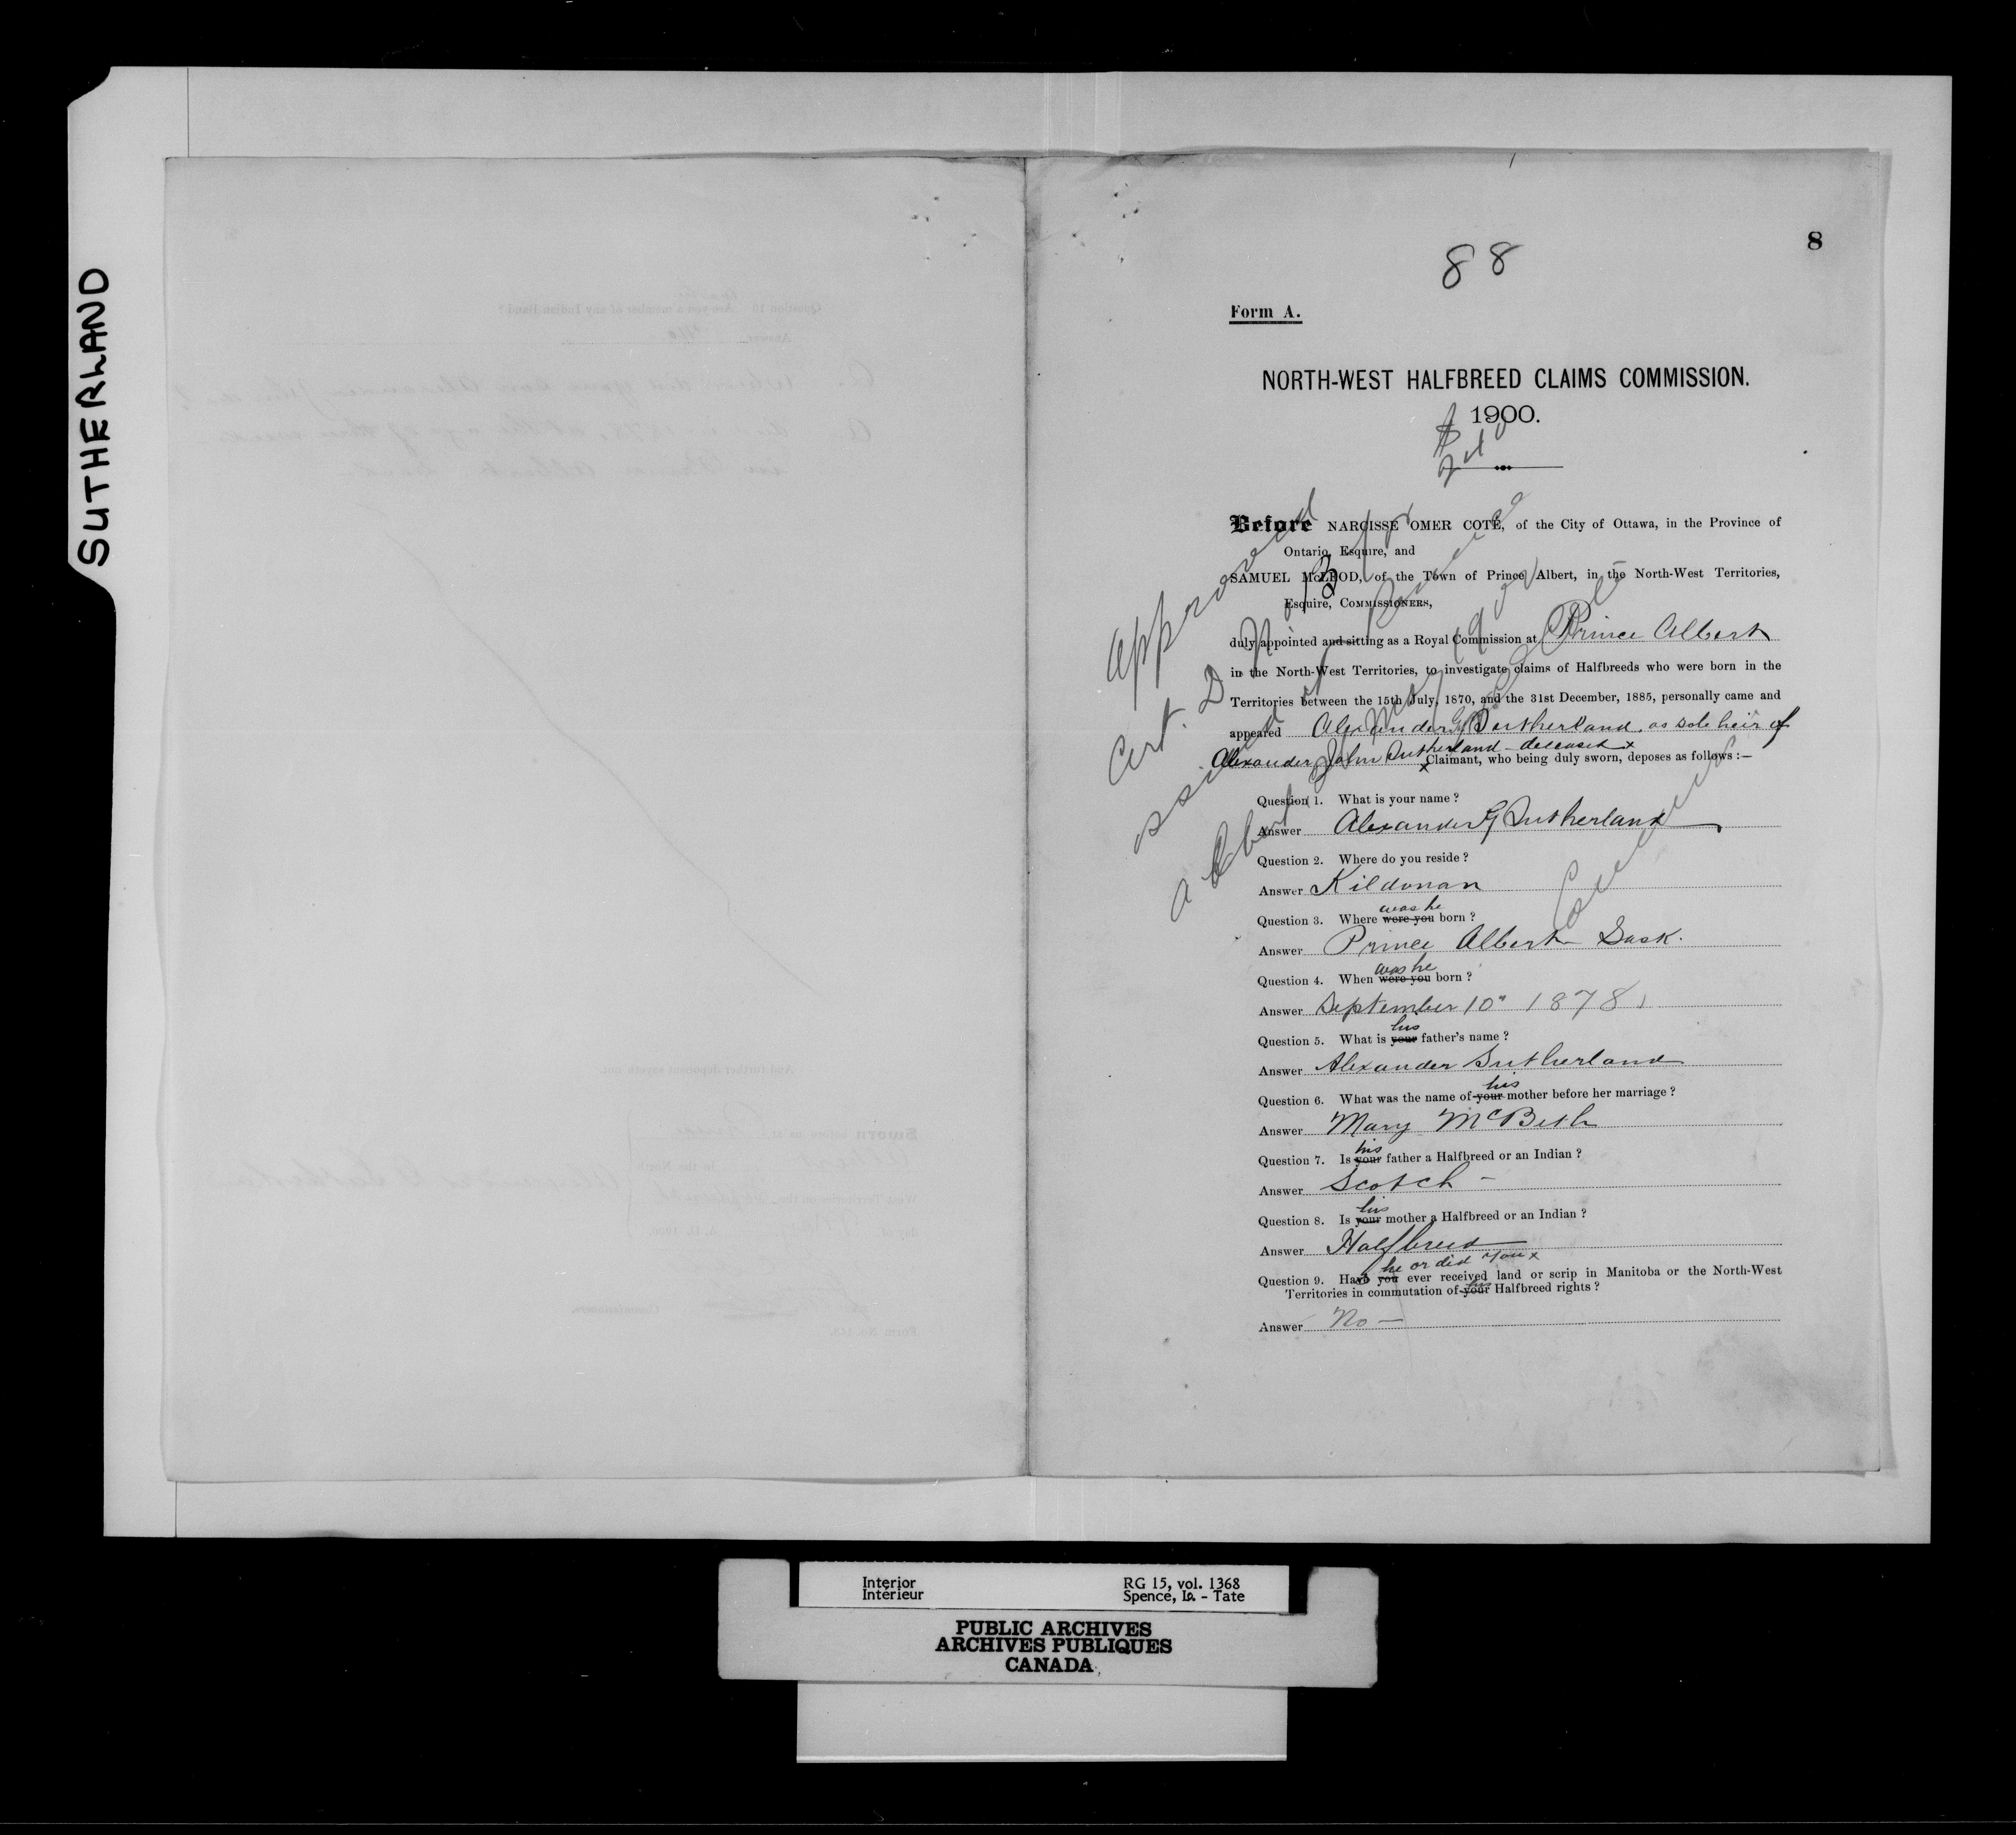 SUTHERLAND
88
8
Form A.
NORTH-WEST HALFBREED CLAIMS COMMISSION.
1900.
Before NARCISSE OMER COTÉ, of the City of Ottawa, in the Province of
Ontario, Esquire, and
SAMUEL McLEOD, of the Town of Prince Albert, in the North-West Territories,
Esquire, COMMISSIONERS,
duly appointed and sitting as a Royal Commission at Prince Albert
in the North-West Territories, to investigate claims of Halfbreeds who were born in the
Territories between the 15th July, 1870, and the 31st December, 1885, personally came and
appeared Alexander G Sutherland, as sole heir of
Alexander John Sutherland deceased x
x Claimant, who being duly sworn, deposes as follows:—
Question 1. What is your name?
Answer Alexander G Sutherland
Question 2. Where do you reside?
Answer Kildonan
was he
Question 3. Where were you born?
Answer Prince Albert Sask.
was he
Question 4. When were you born?
Answer September 10" 1878
his
Question 5. What is your father's name?
Answer Alexander Sutherland
his
Question 6. What was the name of your mother before her marriage?
Answer Mary McBeth
his
Question 7. Is your father a Halfbreed or an Indian?
Answer Scotch –
his
Question 8. Is your mother a Halfbreed or an Indian?
Answer Halfbreed
he or did you x
Question 9. Have you ever received land or scrip in Manitoba or the North-West
his
Territories in commutation of your Halfbreed rights?
Answer No —
Approved
Cert. D
issued
Interior RG 15, vol. 1368
Intérieur Spence, Is. - Tate
PUBLIC ARCHIVES
ARCHIVES PUBLIQUES
CANADA